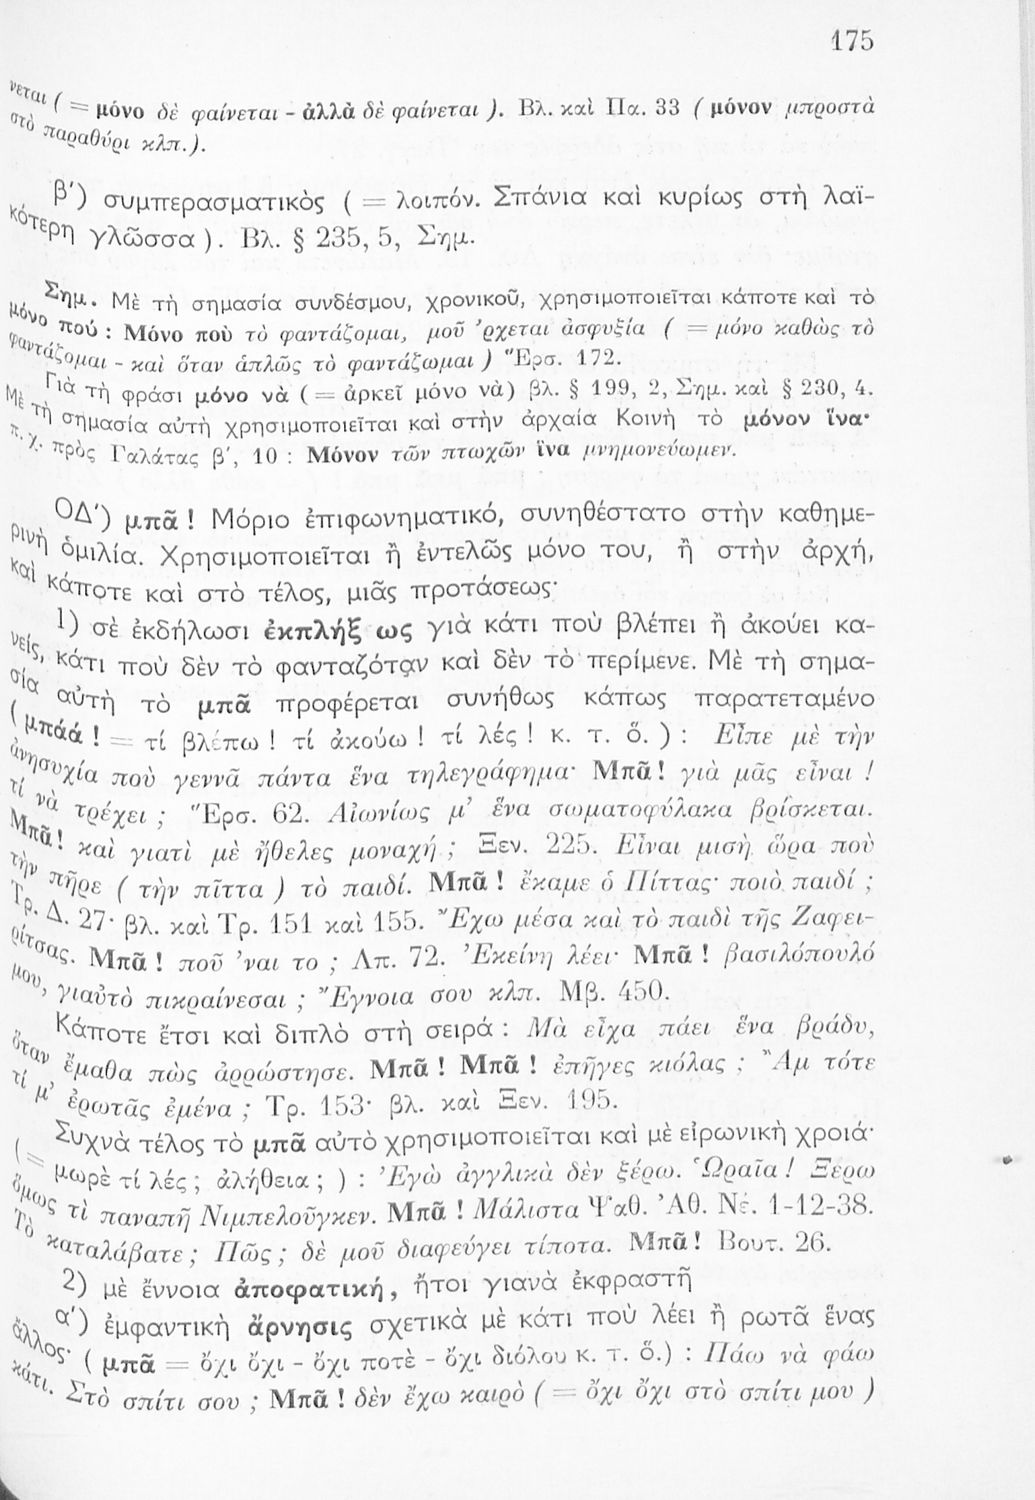 175
νεται ( = μόνο δὲ φαίνεται - ἀλλὰ δὲ φαίνεται ). Βλ. καὶ Πα. 33 ( μόνον μπροστὰ
στὸ παραθύρι κλπ.).
β′) συμπερασματικὸς ( = λοιπόν. Σπάνια καὶ κυρίως στὴ λαϊ-
κότερη γλῶσσα ). Βλ. § 235, 5, Σημ.
Σημ. Μὲ τὴ σημασία συνδέσμου, χρονικοῦ, χρησιμοποιεῖται κάποτε καὶ τὸ
μόνο πού : Μόνο ποὺ τὸ φαντάζομαι, μοῦ ’ρχεται ἀσφυξία ( = μόνο καθὼς τὸ
φαντάζομαι - καὶ ὅταν ἁπλῶς τὸ φαντάζωμαι ) Ἔρσ. 172.
Γιὰ τὴ φράσι μόνο νὰ ( = ἀρκεῖ μόνο νὰ) βλ. § 199, 2, Σημ. καὶ § 230, 4.
Μὲ τὴ σημασία αὐτὴ χρησιμοποιεῖται καὶ στὴν ἀρχαία Κοινὴ τὸ μόνον ἵνα·
π.χ. πρὸς Γαλάτας β′, 10 : Μόνον τῶν πτωχῶν ἵνα μνημονεύωμεν.
ΟΔ′) μπᾶ ! Μόριο ἐπιφωνηματικό, συνηθέστατο στὴν καθημε-
ρινὴ ὁμιλία. Χρησιμοποιεῖται ἢ ἐντελῶς μόνο του, ἢ στὴν ἀρχή,
καὶ κάποτε καὶ στὸ τέλος, μιᾶς προτάσεως·
1) σὲ ἐκδήλωσι ἐκπλήξ ως γιὰ κάτι ποὺ βλέπει ἢ ἀκούει κα-
νείς, κάτι ποὺ δὲν τὸ φανταζόταν καὶ δὲν τὸ περίμενε. Μὲ τὴ σημα-
σία αὐτὴ τὸ μπᾶ προφέρεται συνήθως κάπως παρατεταμένο
( μπάά ! = τί βλέπω ! τί ἀκούω ! τί λές ! κ. τ. ὅ. ) : Εἶπε μὲ τὴν
ἀνησυχία ποὺ γεννᾶ πάντα ἕνα τηλεγράφημα· Μπᾶ! γιὰ μᾶς εἶναι !
τί νὰ τρέχει ; Ἔρσ. 62. Αἰωνίως μ’ ἕνα σωματοφύλακα βρίσκεται.
Μπᾶ! καὶ γιατὶ μὲ ἤθελες μοναχή ; Ξεν. 225. Εἶναι μισὴ ὥρα ποὺ
τὴν πῆρε ( τὴν πίττα ) τὸ παιδί. Μπᾶ ! ἔκαμε ὁ Πίττας· ποιὸ παιδί ;
Τρ. Δ. 27· βλ. καὶ Τρ. 151 καὶ 155. Ἔχω μέσα καὶ τὸ παιδὶ τῆς Ζαφει-
ρίτσας. Μπᾶ ! ποῦ ’ναι το ; Λπ. 72. Ἐκείνη λέει· Μπᾶ ! βασιλόπουλό
μου, γιαὐτὸ πικραίνεσαι ; Ἔγνοια σου κλπ. Μβ. 450.
Κάποτε ἔτσι καὶ διπλὸ στὴ σειρά : Μὰ εἶχα πάει ἕνα βράδυ,
ὅταν ἔμαθα πὼς ἀρρώστησε. Μπᾶ ! Μπᾶ ! ἐπῆγες κιόλας ; Ἄμ τότε
τί μ’ ἐρωτᾶς ἐμένα ; Τρ. 153· βλ. καὶ Ξεν. 195.
Συχνὰ τέλος τὸ μπᾶ αὐτὸ χρησιμοποιεῖται καὶ μὲ εἰρωνικὴ χροιά·
( = μωρὲ τί λές ; ἀλήθεια ; ) : Ἐγὼ ἀγγλικὰ δὲν ξέρω. Ὡραῖα ! Ξέρω
ὅμως τὶ παναπῆ Νιμπελοῦγκεν. Μπᾶ ! Μάλιστα Ψαθ. Ἀθ. Νέ. 1-12-38.
Τὸ καταλάβατε ; Πῶς ; δὲ μοῦ διαφεύγει τίποτα. Μπᾶ! Βουτ. 26.
2) μὲ ἔννοια ἀποφατική, ἤτοι γιανὰ ἐκφραστῆ
α′) ἐμφαντικὴ ἄρνησις σχετικὰ μὲ κάτι ποὺ λέει ἢ ρωτᾶ ἕνας
ἄλλος· ( μπᾶ = ὄχι ὄχι - ὄχι ποτὲ - ὄχι διόλου κ. τ. ὅ.) : Πάω νὰ φάω
κάτι. Στὸ σπίτι σου ; Μπᾶ ! δὲν ἔχω καιρὸ ( = ὄχι ὄχι στὸ σπίτι μου )